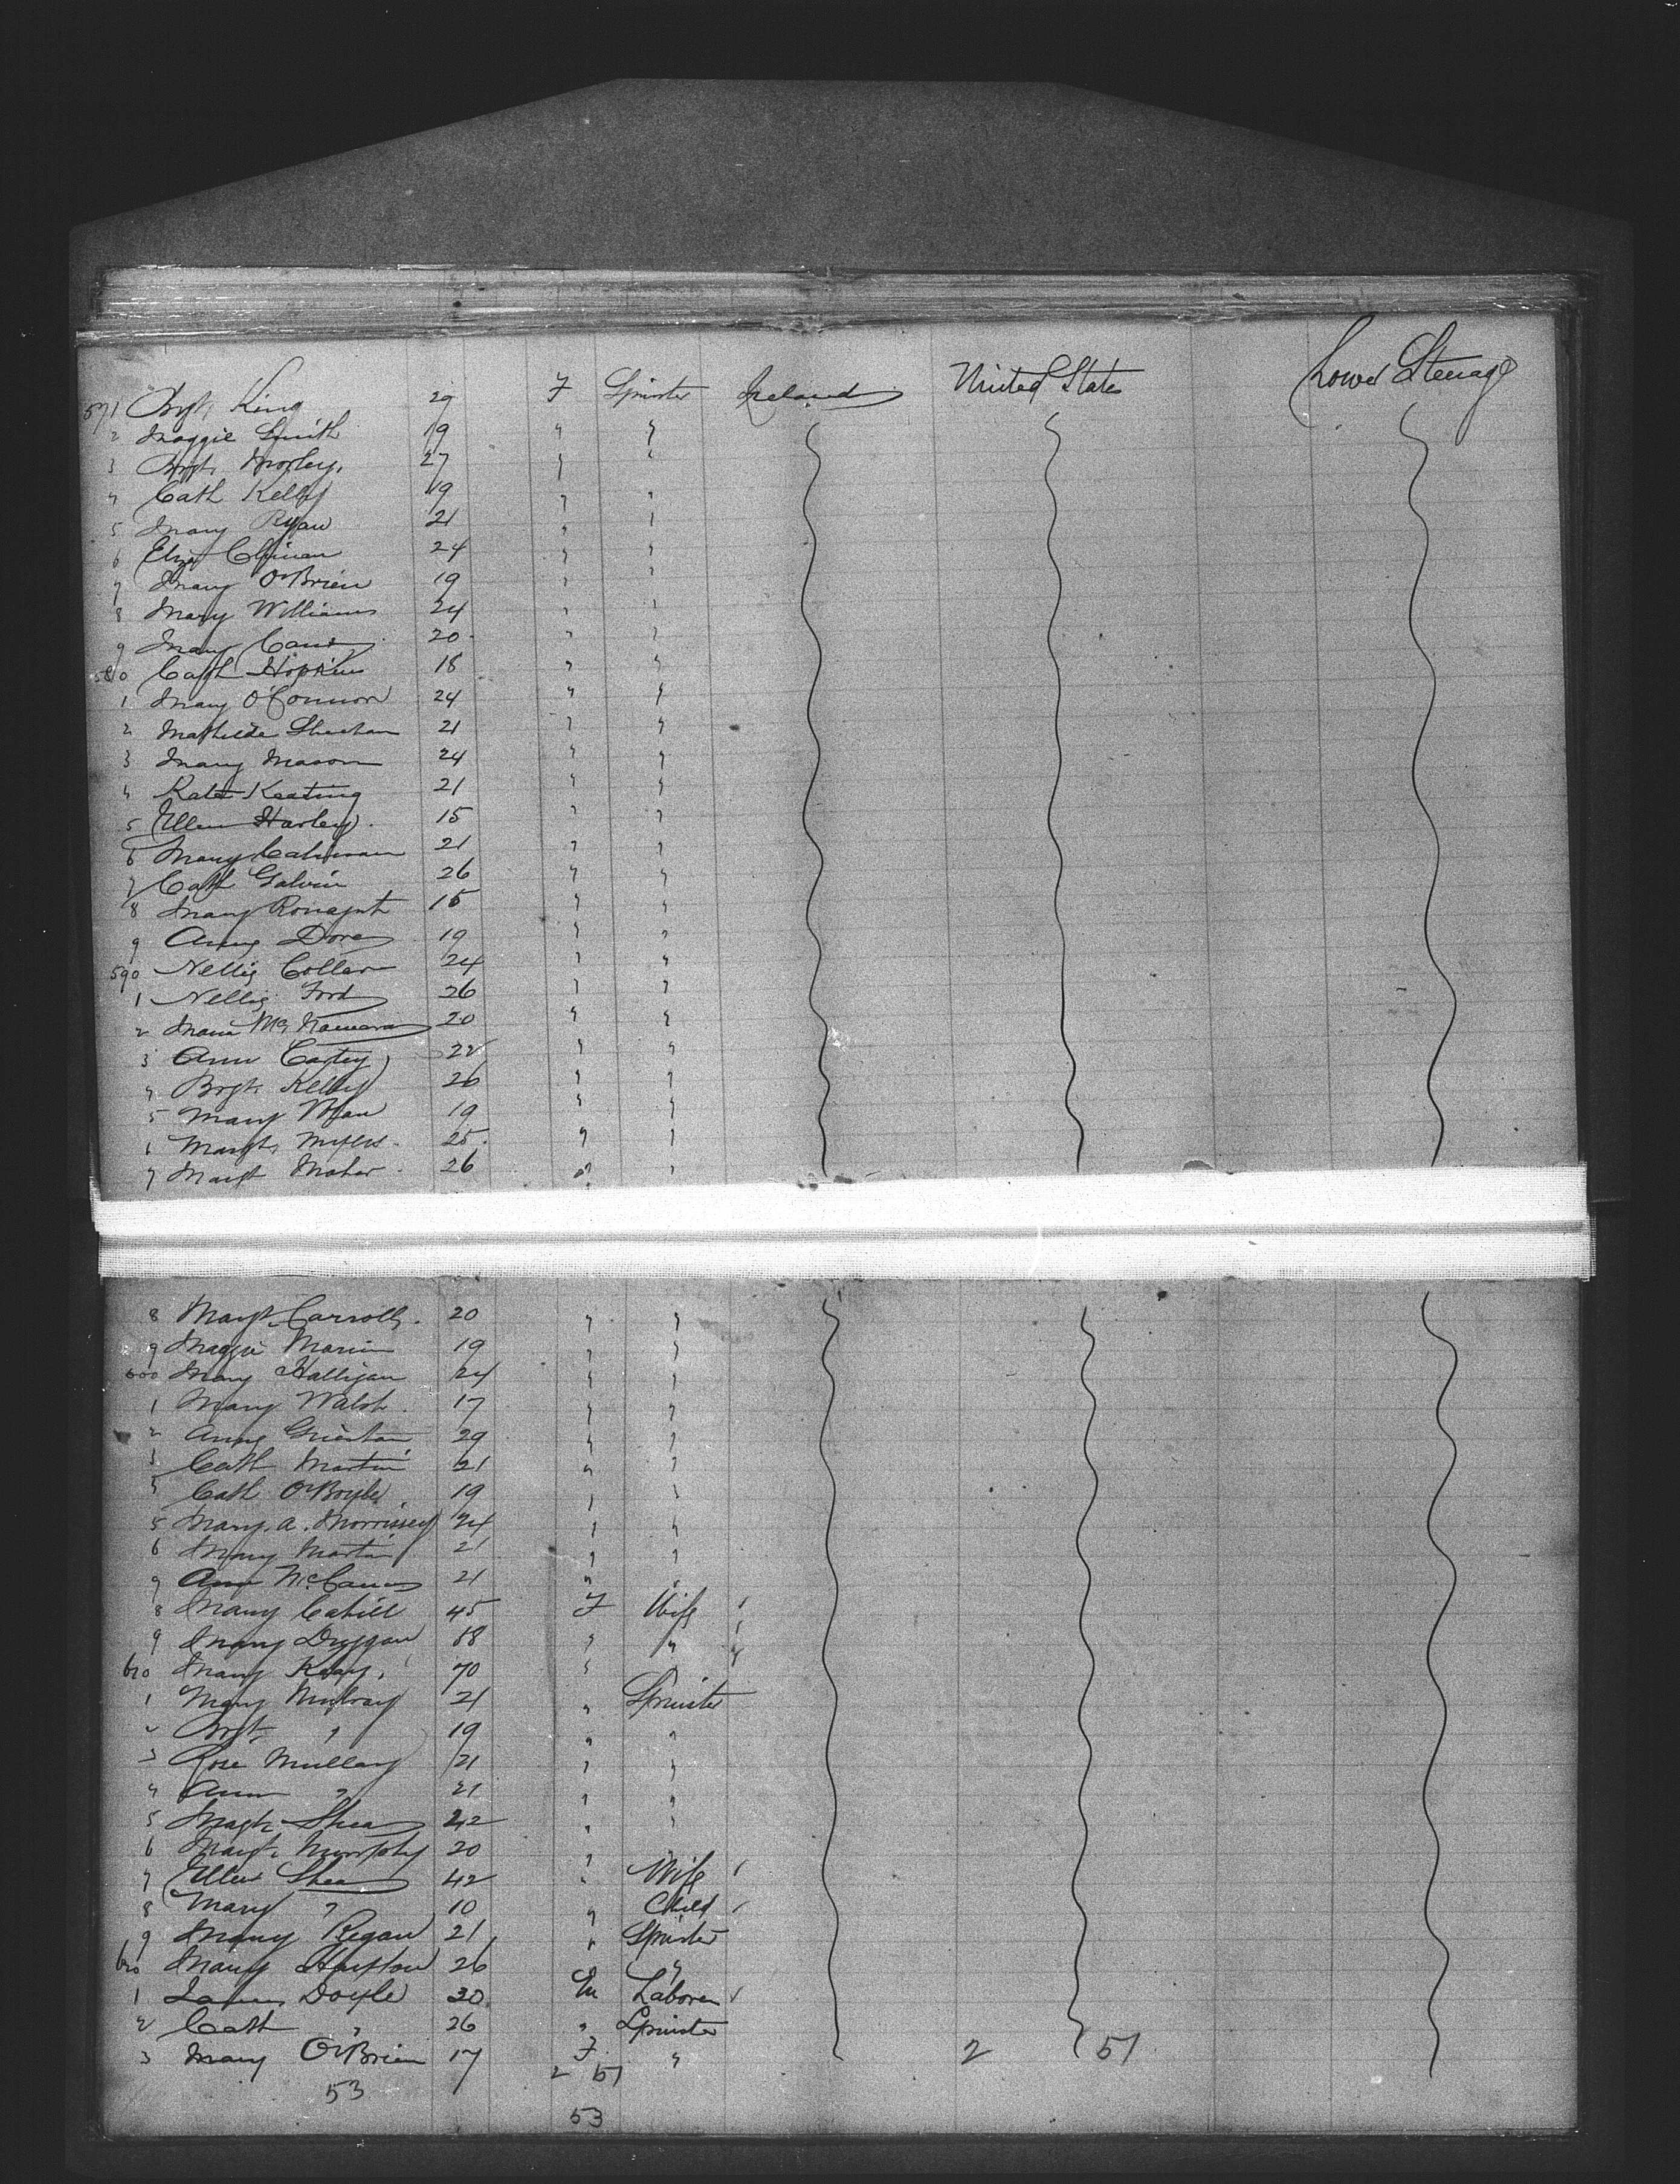 571 Brgt. King 29 F Spinster Ireland United States Lower Steerage
2 Maggie Smith 19 " "
3 Brgt. Morley. 27 " "
4 Cath Kelly 19 " "
5 Mary Ryan 21 " "
6 Eliza 24 " "
7 Mary O'Brien 19 " "
8 Mary Williams 24 " "
9 Mary 20 " "
580 Cath Hopkins 18 " "
1 Mary O'Connor 24 " "
2 Mathilda Sheehan 21 " "
3 Mary Mason 24 " "
4 Kate Keating 21 " "
5 Ellen Harley. 15 " "
6 Mary Calinan 21 " "
7 Cath Galvin 26 " "
8 Mary 15 " "
9 Anny Dorey 19 " "
590 Nellie Coller 24 " "
1 Nellie Ford 26 " "
2 Maria McNamara 20 " "
3 Ann Carty 22 " "
4 Brgt. Kelly 26 " "
5 Mary Ryan 19 " "
6 Margt. Myers. 25. " "
7 Margt Maher. 26 " "
8 Margt. Carroll. 20 " "
9 Maggie 19 " "
600 Mary Halligan 24 " "
1 Mary Walsh. 17 " "
2 Anny 29 " "
3 Cath Martin 21 " "
Cath O'Boyle 19 " "
5 Mary. A. Morrissey 24 " "
6 Mary Martin 21 " "
Ann 21 " "
8 Mary Cahill 45 F Wife
9 Mary Duggan " "
610 Mary 70 "
1 Mary Mulray 21 " Spinster
2 Brgt. " 19 " "
3 Rose Mullany 21 " "
4 Ann " 21 " "
5 Shea " "
6 Margt. Murphy 20 "
7 Ellen Shea 42 " Wife
8 Mary " 10 " Child
9 Mary Regan 21 " Spinster
620 Mary 26 "
1 James Doyle 30 M Laborer
2 Cath " 26 " Spinster
3 Mary O'Brien 17 F " 2 51
2 51
53
53